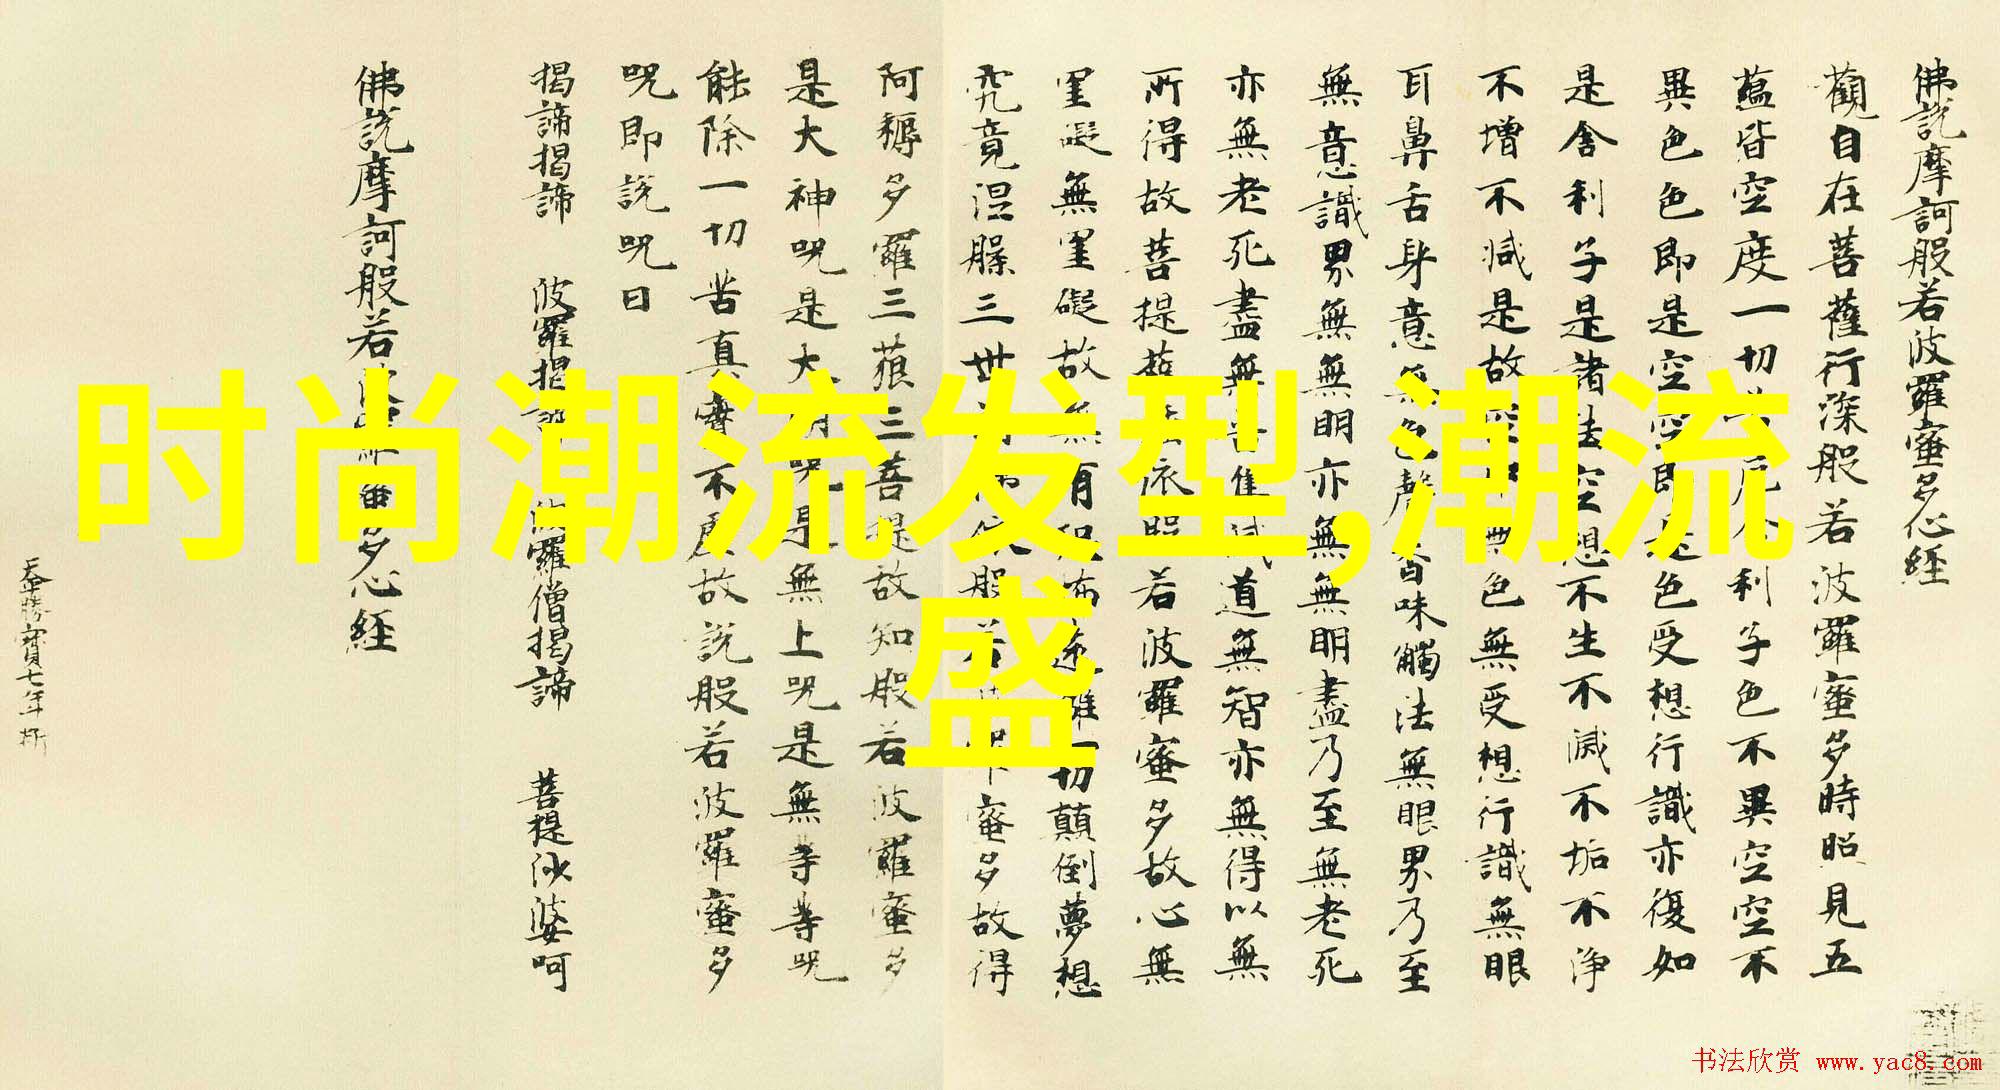 佛說摩訶般若波羅蜜多心經
觀自在菩薩行深般若波羅蜜多時照見五
蘊皆空度一切
利子色不異空空不
異色色即是空空即是色受想行識亦復如
是舍利子是諸法空想不生不滅不垢不淨
不增不減是故空中無色無受想行識無眼
耳鼻舌身意無色聲香味觸法無眼界乃至
無意識界無無明亦無無明盡乃至無老死
亦無老死盡無苦集滅道無智亦無得以無
所得故菩提薩
依照若波羅蜜多故心無
罣礙無罣礙故無有
切顛倒夢想
究竟涅槃三世
蜜多故得
阿耨多羅三藐三菩提故知般若波羅蜜多
是大神咒是大明咒是無上咒是無等等咒
能除一切苦真實不虛故說般若波羅蜜多
咒即說咒曰
揭諦揭諦 波羅揭諦 波羅僧揭諦 菩提沙婆呵
佛說摩訶般若波羅蜜多心經
天平勝寶七年
时尚潮流发型,潮流
盛
书法欣赏 www.yac8.com